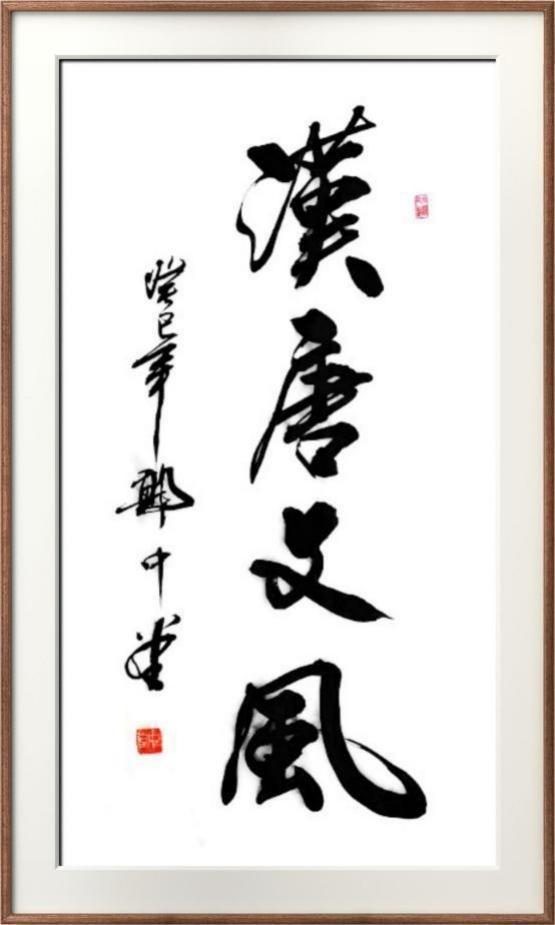 漢唐文風
癸巳年鄭中堂